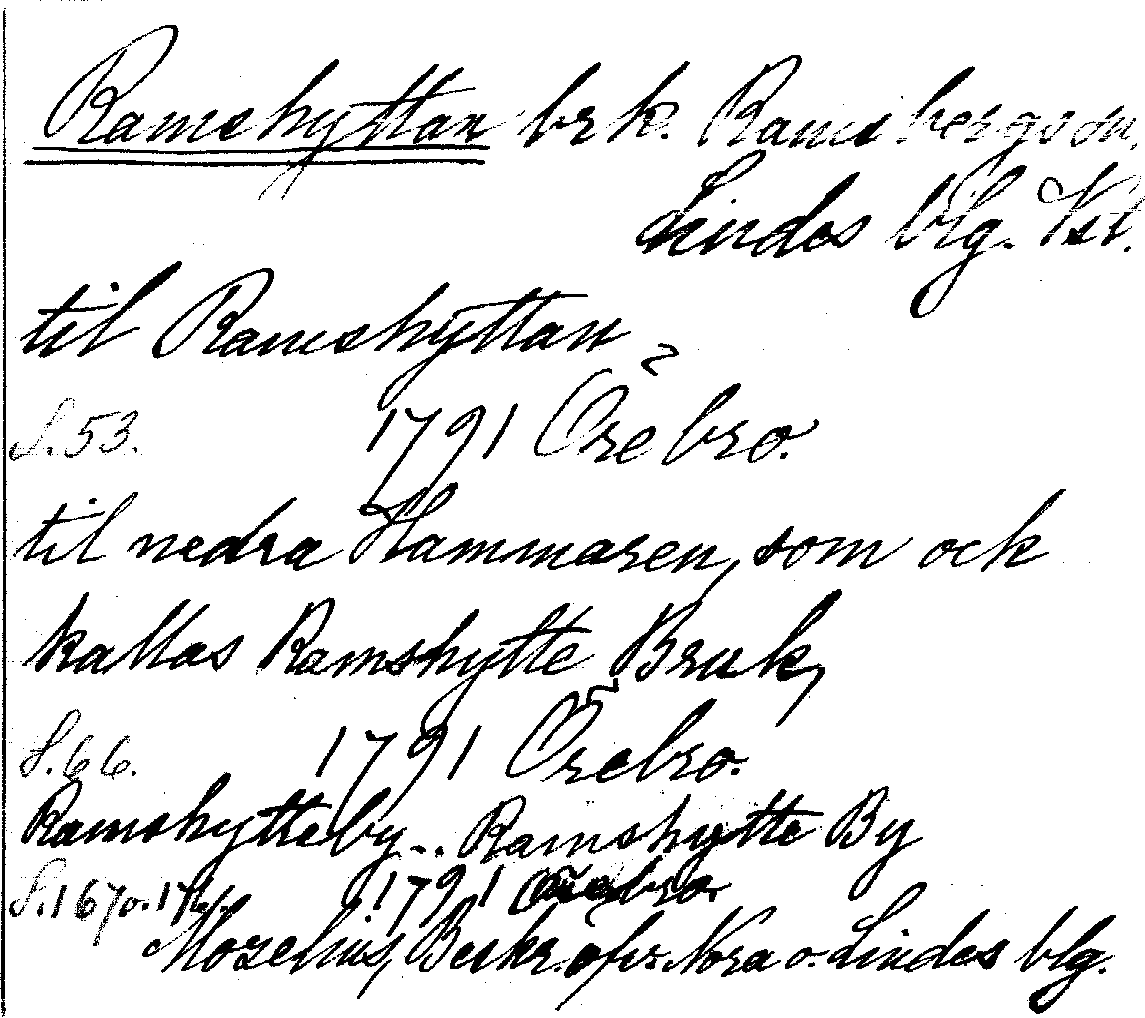 Ramshyttan brk. Ramsbergs sn,
Lindes blg. Vst.
til Ramshyttan
S. 53. 1791 Örebro.
til nedra Hammaren, som ock
kallas Ramshytte Bruk,
S. 66. 1791 Örebro.
Ramshytteby... Ramshytte By
S. 167 o. 1791 Örebro.
Mozelius, Beskr. öfver Nora o. Lindes blg.